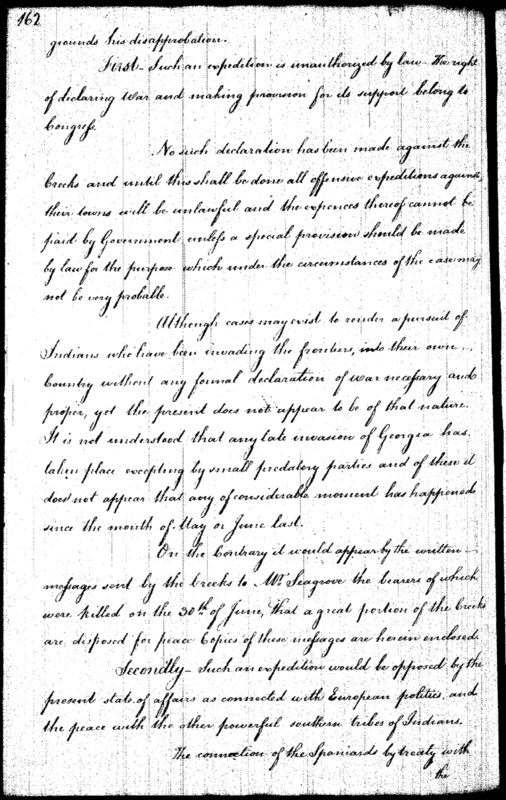 162
grounds his disapprobation.
First - Such an expedition is unauthorized by law - The right
of declaring War and making provision for its support belong to
Congress.
No such declaration has been made against the
Creeks and until this shall be done all offensive expeditions against
their towns will be unlawful and the expences thereof cannot be
paid by Government unless a special provision should be made
by law for the purpose which under the circumstances of the case may
not be very probable.
Although cases may exist to render a pursuit of
Indians who have been invading the frontiers, into their own
Country without any formal declaration of war necessary and
proper, yet the present does not appear to be of that nature.
It is not understood that any late invasion of Georgia has
taken place excepting by small predatory parties and of these it
does not appear that any of considerable moment has happened
since the month of May or June last.
On the Contrary it would appear by the written
messages sent by the Creeks to Mr. Seagrove the bearers of which
were killed on the 30th of June, that a great portion of the Creeks
are disposed for peace Copies of these messages are herein enclosed.
Secondly - Such an expedition would be opposed by the
present state of affairs as connected with European politics, and
the peace with the other powerful southern tribes of Indians.
The connection of the Spaniards by treaty with
the